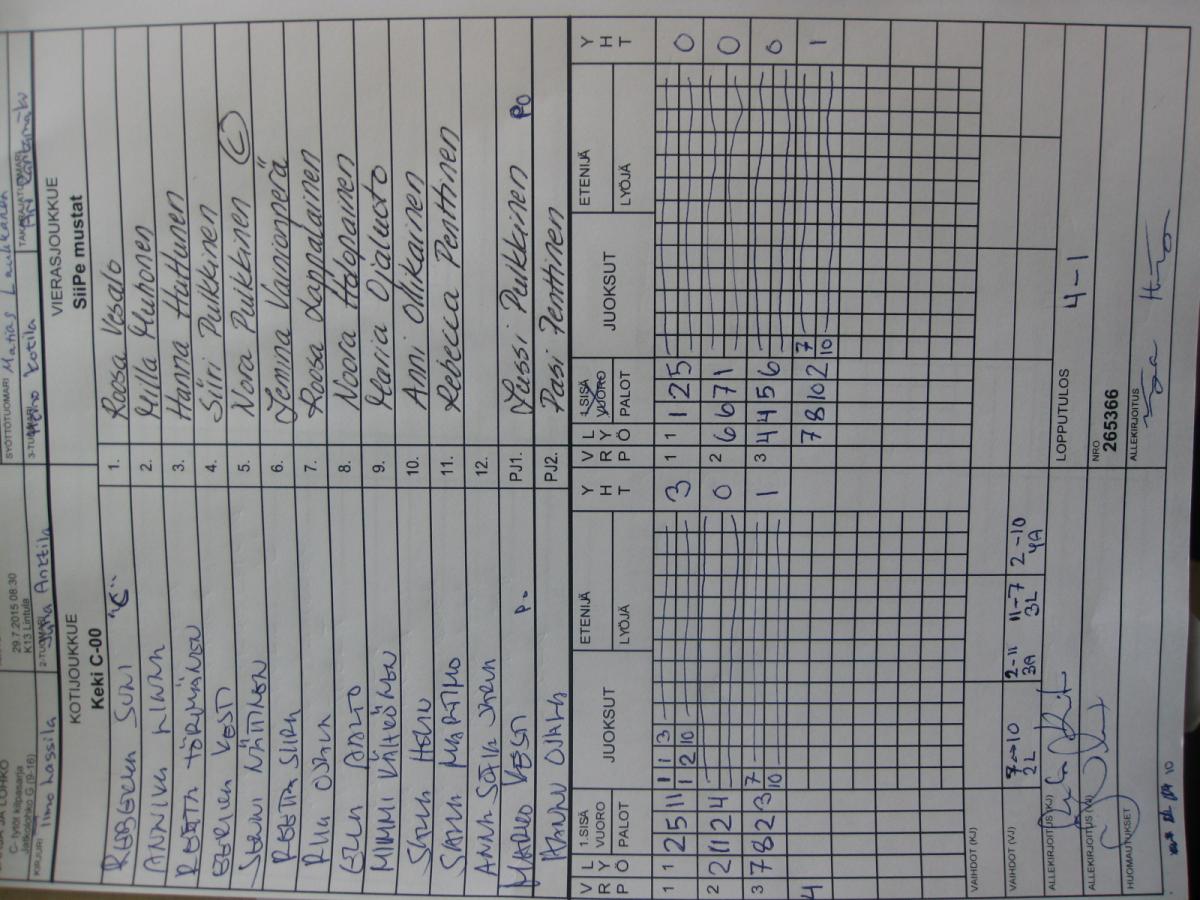 C- tytöt kilpasarja
Jatkolohko G (9-16)
29.7.2015 08:30
K13 Lintula
SYÖTTÖTUOMARI Matias Laukkanen
KIRJURI Ilmo Lassila
2-TUOMARI Juha Anttila
3-TUOMARI Kotila
TAKARAJATUOMARI
KOTIJOUKKUE
Keki C-00
VIERASJOUKKUE
SiiPe mustat
REBEKKA SUNI "C" 1. Roosa Vesalo
ANNIKA 2. Milla Muhonen
REETTA TÖRMÄNEN 3. Hanna Huttunen
EERIKA VESTI 4. Siiri Pulkkinen
SENNI NÄTTINEN 5. Nora Pulkkinen C
REETTA SIIRA 6. Jenna Vainionperä
PIIA OJALA 7. Roosa Lappalainen
ELLA AALTO 8. Noora Halonainen
MIMMI VÄHKÖNEN 9. Maria Ojaluoto
10. Anni Ollikainen
SANNI MARTIMO 11. Rebecca Penttinen
ANNA SOFIA 12.
MARKO VESTI P. PJ1. Jussi Pulkkinen PO
HANNU OJALA PJ2. Pasi Penttinen
VRP LYÖ 1.SISÄVUORO PALOT JUOKSUT ETENIJÄ LYÖJÄ YHT
VRP LYÖ 1.SISÄVUORO PALOT JUOKSUT ETENIJÄ LYÖJÄ YHT
1 1 2 5 11 1 1 3 3
1 2 10
1 1 1 2 5 0
2 2 11 2 4 0
2 6 6 7 1 0
3 7 8 2 3 7 1
10
3 4 4 5 6 0
4
7 8 10 2 7 1
10
VAIHDOT (KJ)
VAIHDOT (VJ) 7→10 2L 2-11 3A 11-7 3L 2-10 4A
ALLEKIRJOITUS (KJ)
LOPPUTULOS 4-1
ALLEKIRJOITUS (VJ)
NRO
265366
HUOMAUTUKSET
ALLEKIRJOITUS
10